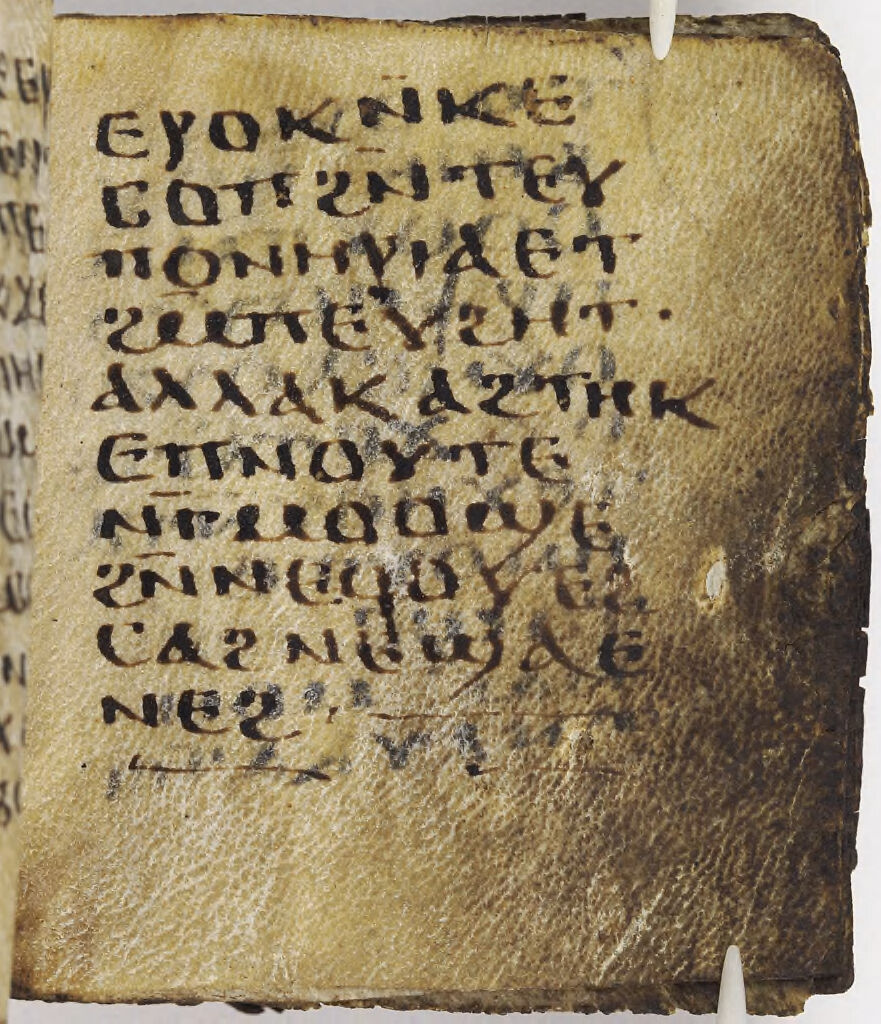 ⲉⲣⲟⲕⲛ̄ⲕⲉ
ⲥⲟⲡϩⲛ̄ⲧⲉⲩ
ⲡⲟⲛⲏⲣⲓⲁⲉⲧ
ϩⲙ̄ⲡⲉⲩϩⲏⲧ·
ⲁⲗⲗⲁⲕⲁϩⲧⲏⲕ
ⲉⲡⲛⲟⲩⲧⲉ
ⲛ̄ⲅⲙⲟⲟϣⲉ
ϩⲛ̄ⲛⲉϥⲟⲩⲉϩ
ⲥⲁϩⲛⲉϣⲁⲉ
ⲛⲉϩ·